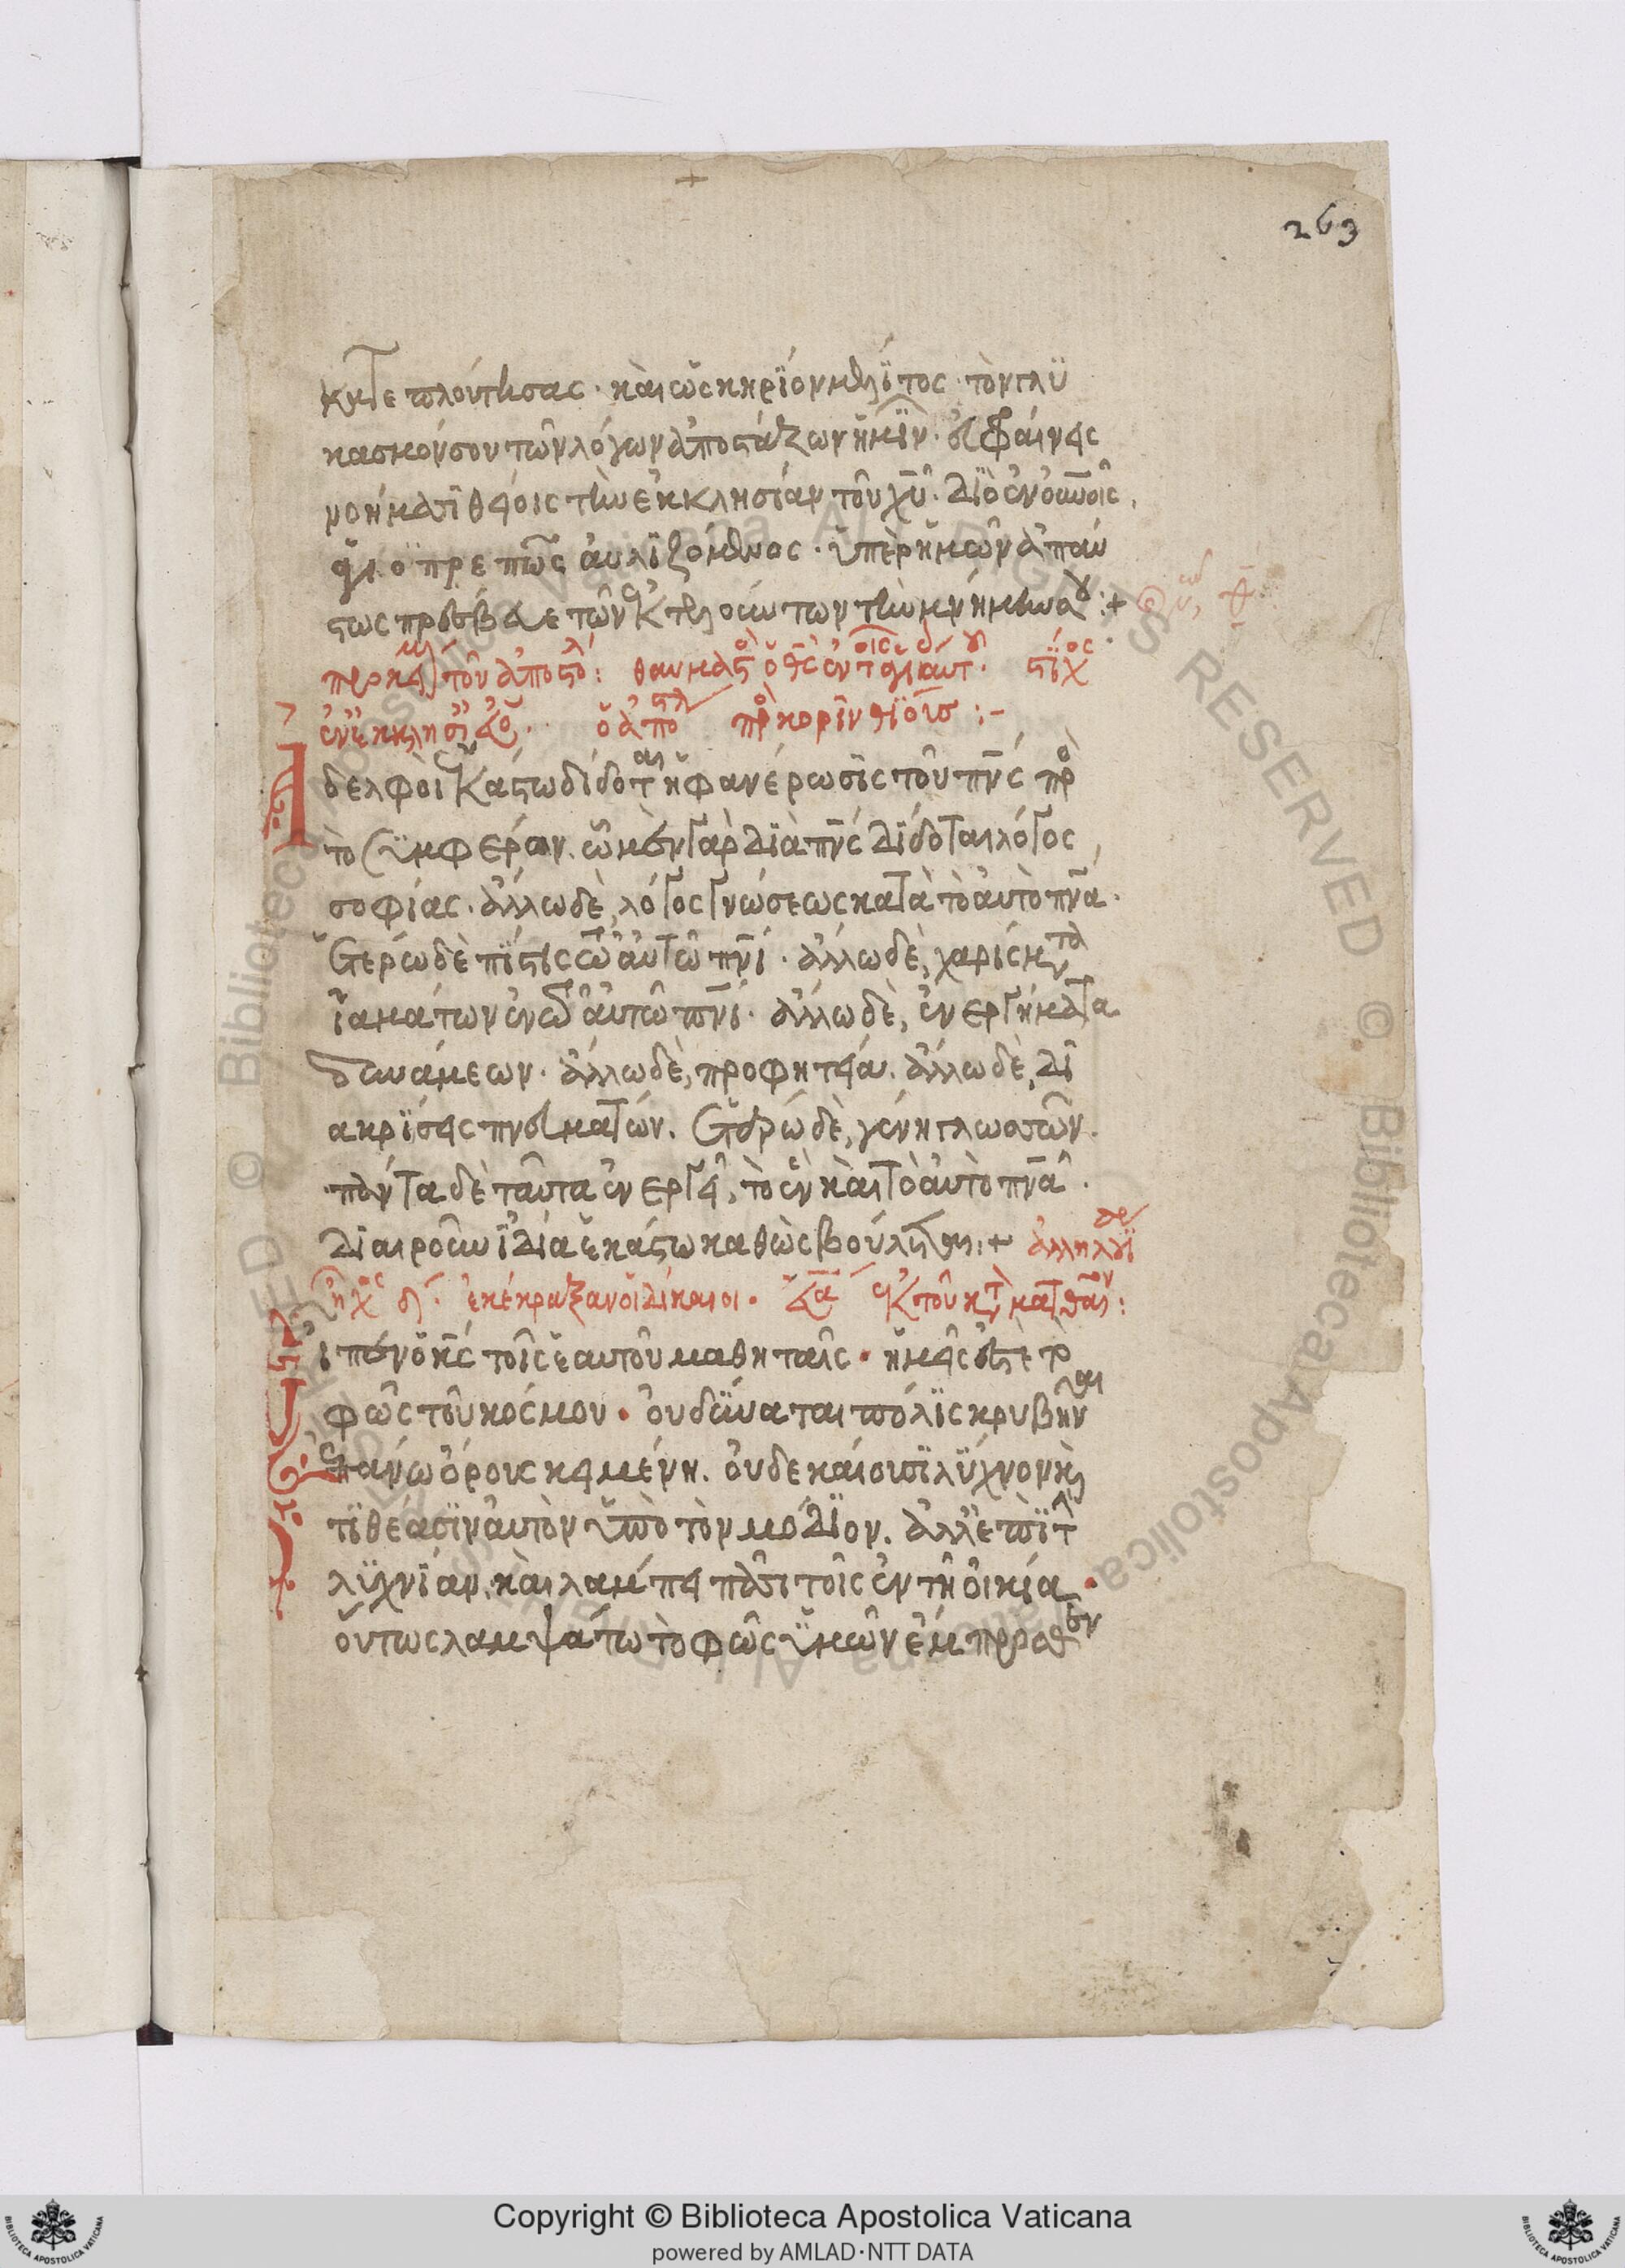 263
κητε πλούτησας · καὶ ὡς κηρΐον μέλϊτος · τὸν γλϋ
κασμόν σου τῶν λόγων ἀποστάζων ἡμῖν · εὐφραίνεις
νοήμασϊ θείοις τὴν ἐκκλησίαν τοῦ χῦ · Διὸ ἐν ὀυνοῖς
θεοπρεπῶς ἀυλϊζόμενος · ὑπὲρ ἡμῶν ἀπαύ
στως πρέσβευε τῶν ἐκτελούντων τὴν μνήμην σου :+
προκεί τοῦ ἀποστόλ : θαυμαστ ὁ θς ἐν τοῖς ἁγίοις αὐτοῦ · στίχος
ἐν ἐκκλησίαις · ὁ ἀποστλ πρὸ κορϊνθΐοῖσ :-
Αδελφοὶ ἑκάστω δίδοται ἡ φανέρωσϊς τοῦ πνς πρὸ
τὸ συμφέρον. ὧ μὲν γὰρ διὰ πνς δίδοται λόγος
σοφίας · ἄλλω δὲ, λόγος γνώσεως κατὰ τὸ ἀυτὸ πνᾶ ·
ἑτέρω δὲ πΐστϊς ἐν τῶ ἀυτῶ πνϊ · ἄλλω δὲ, χαρίσματα
ἰαμάτων ἐν τῶ ἀυτῶ πνϊ · ἄλλω δὲ, ἐνεργήματα
δυνάμεων · ἄλλω δὲ, προφητεία · ἄλλω δὲ, δϊ
ακρϊσεις πνευμάτων. ἑτέρω δὲ, γένη γλωσσῶν.
πάντα δὲ ταῦτα ἐνεργεῖ, τὸ ἓν καὶ τὸ ἀυτὸ πνᾶ ·
Διαιροῦν ϊδία ἑκάστω καθὼς βούλεται :+ ἀλληλουϊ
ἦχος δ · ἐκέκραξαν οἱ δίκαιοι · ἐκ τοῦ κατὰ ματθαῖον :
Εἶπεν ὁ κς τοῖς ἑαυτοῦ μαθηταῖς · ὑμεῖς ἐστὲ τὸ
φῶς τοῦ κόσμου · ὀυ δύναται πόλϊς κρυβῆναι
ἐπάνω ὄρους κειμένη. ὀυδὲ καίουσϊ λύχνον κ
τϊθέασϊν ἀυτὸν ὑπὸ τὸν μόδϊον. ἀλλ ἐπὶ τὴν
λυχνΐαν, καὶ λάμπει πᾶσι τοῖς ἐν τῆ οἰκία ·
ὅυτως λαμψάτω τὸ φῶς ὑμῶν ἔμπροσθεν
Copyright © Biblioteca Apostolica Vaticana
powered by AMLAD·NTT DATA